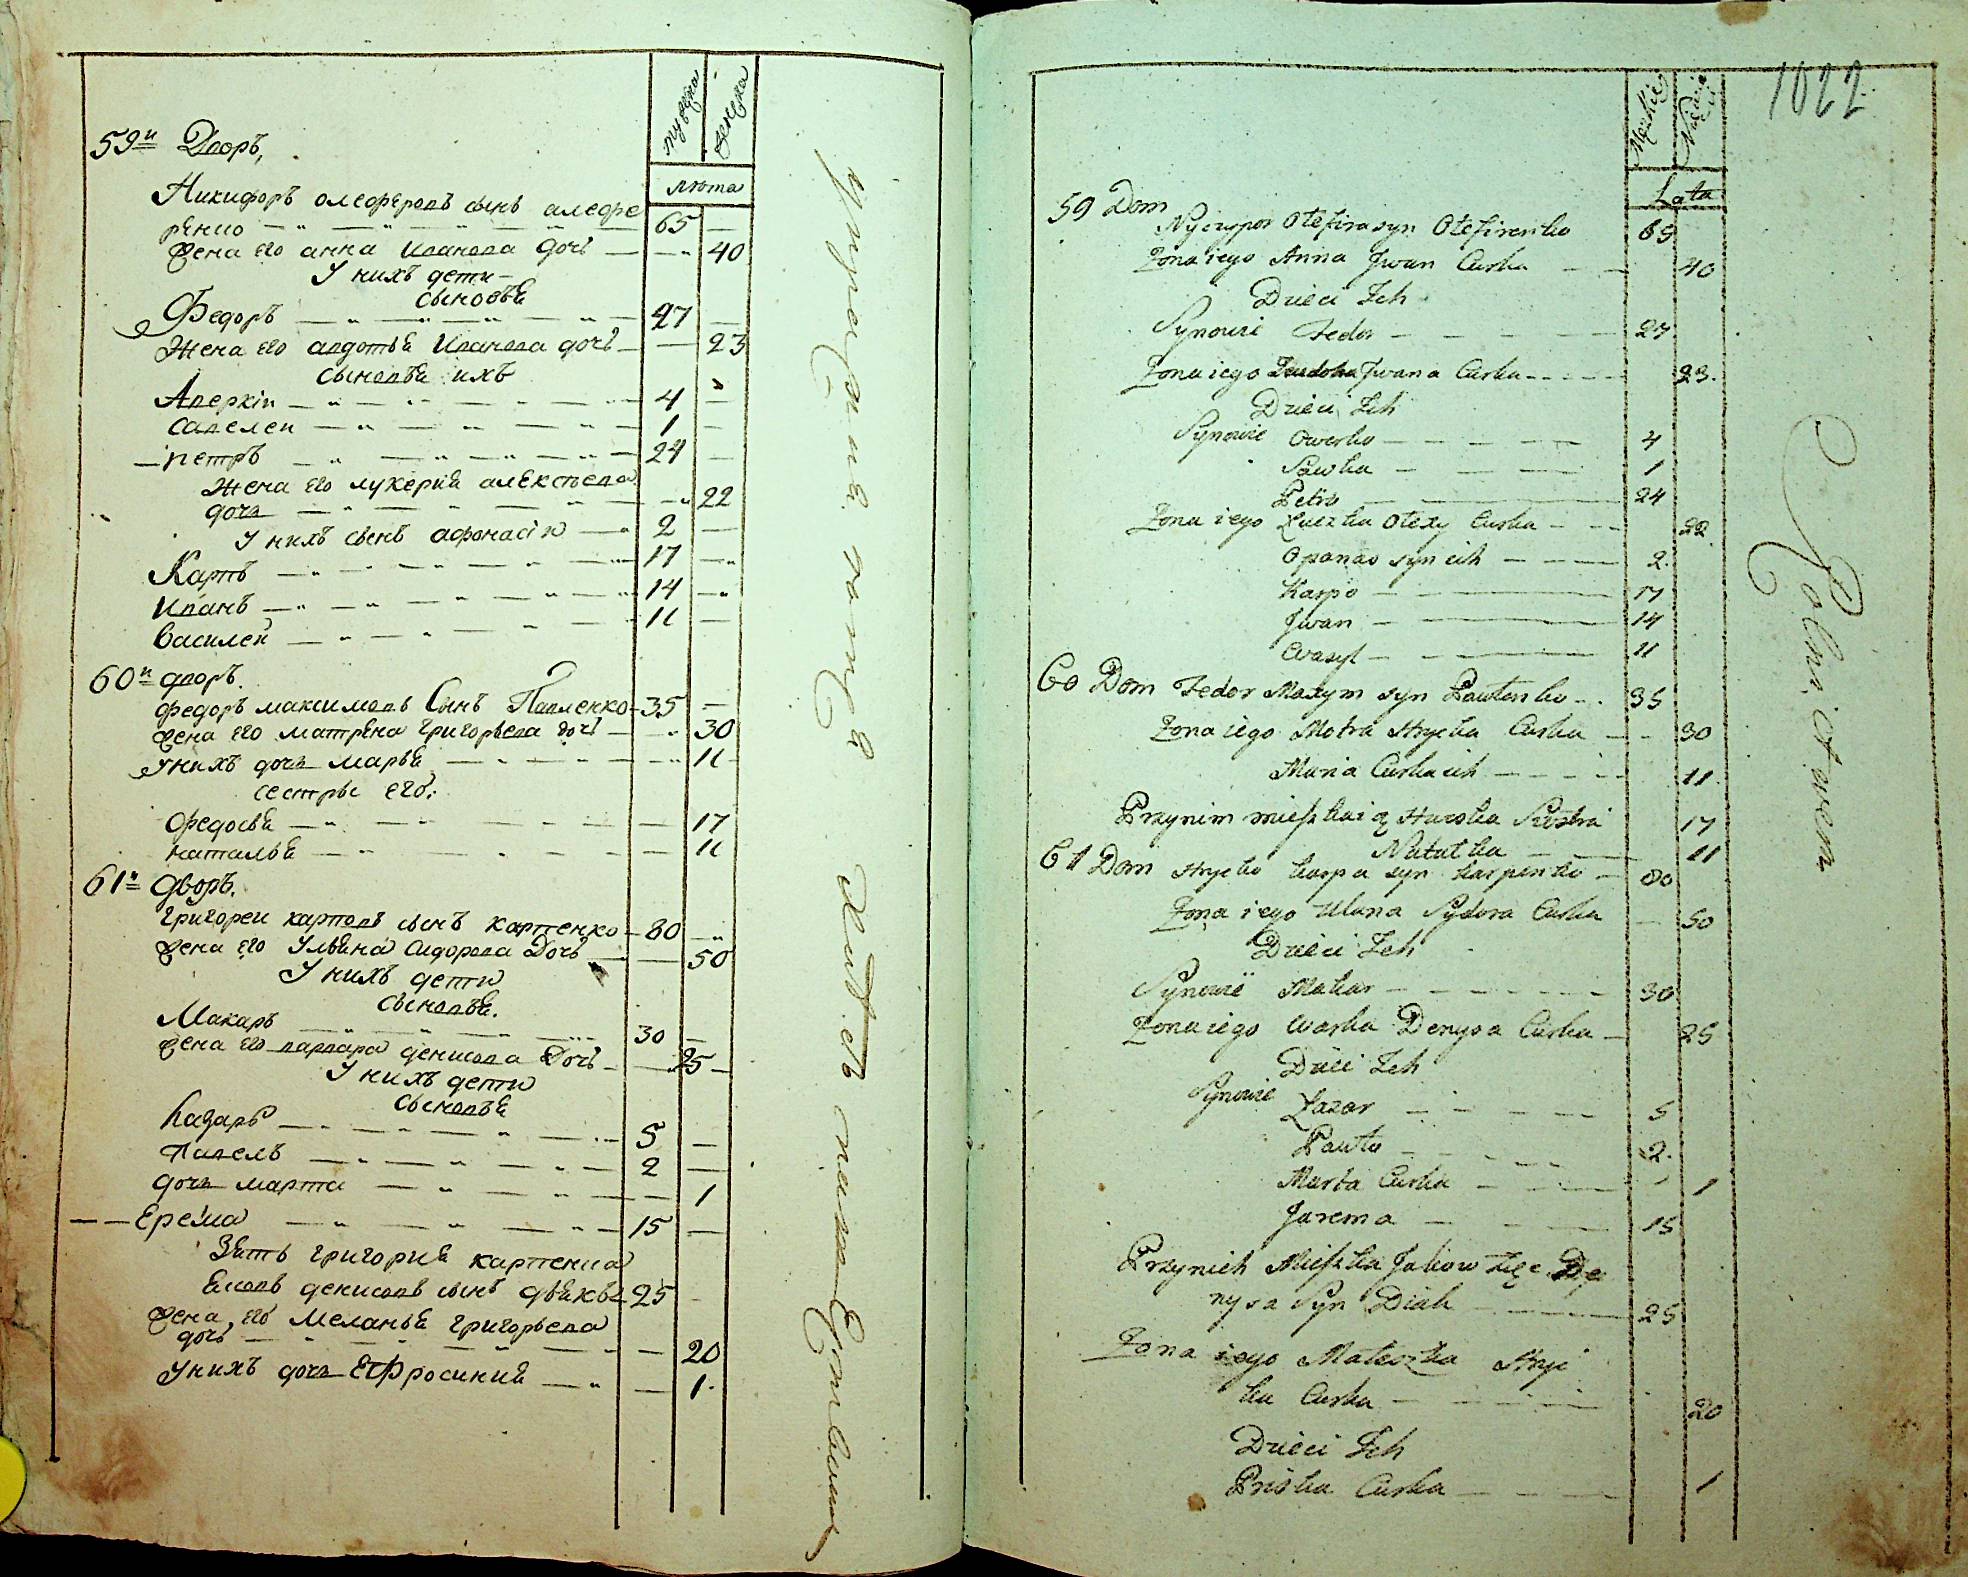 мужеска
женска
лѣта
59й Дворъ,
Никифоръ олеферовъ сынъ алефе
ренко 65
жена его анна Иванова дочь 40
У нихъ дети
сыновья
Федоръ 27
Жена его авдотья Иванова дочь 23
сыновья ихъ
Аверкiи 4
Савелеи 1
петръ 24
Жена его лукерия алексѣева
дочь 22
У нихъ сынъ афонасiи 2
Карпъ 17
Иванъ 14
Василей 11
60й дворъ.
Федоръ максимовъ Сынъ Павленко 35
жена его матрена григорьева дочь 30
У нихъ дочь марья 11
сестры его:
Федосья 17
наталья 11
61й дворъ.
Григореи карповъ сынъ карпенко 80
жена его Ульяна сидорова Дочь 50
У нихъ дети
сыновья.
Макаръ 30
жена его варвара денисова Дочь 25
У нихъ дети
сыновья
Лазарь 5
Павелъ 2
дочь марта 1
Ерема 15
Зять григория карпенка
Яковъ денисовъ сынъ дьякъ 25
жена его Меланья григорьева
дочь 20
У нихъ дочь Ефросиния 1
1022
Męzkie
Lata
59 Dom
Nyczypor Olefira syn Olefirenko 65
Zona iego Anna Jwan Curka 40
Dzieci Ich
Synowie Fedor 27
Zona iego Jwana Curka 23.
Dzieci Ich
Synowie Owerko 4
Sawka 1
Petro 24
Zona iego Łuczka Olexy Curka 22
Opanas syn ich 2.
Karpo 17
Jwan 14
Wasyl 11
60 Dom Fedor Maxym syn Pawlenko 35
Zona iego Motra Hrycka Curka 30
Maria Curka ich 11
Przynim mieszkaią Siostra 17
Natalka 11
61 Dom Hrycko Karpa syn Karpenko 80
Zona iego Ulana Sydora Curka 50
Dzieci Ich
Synowie Makar 30
Zona iego Warka Denysa Curka 25
Dzieci Ich
Synowie Łazar 5
Pawło 2.
Marta Curka 1
Jarema 15
Przynich Mieszka Jakow zięć De
nysa Syn Diak 25
Zona iego Hryc
ka Curka 20
Dzieci Ich
Priska Curka 1